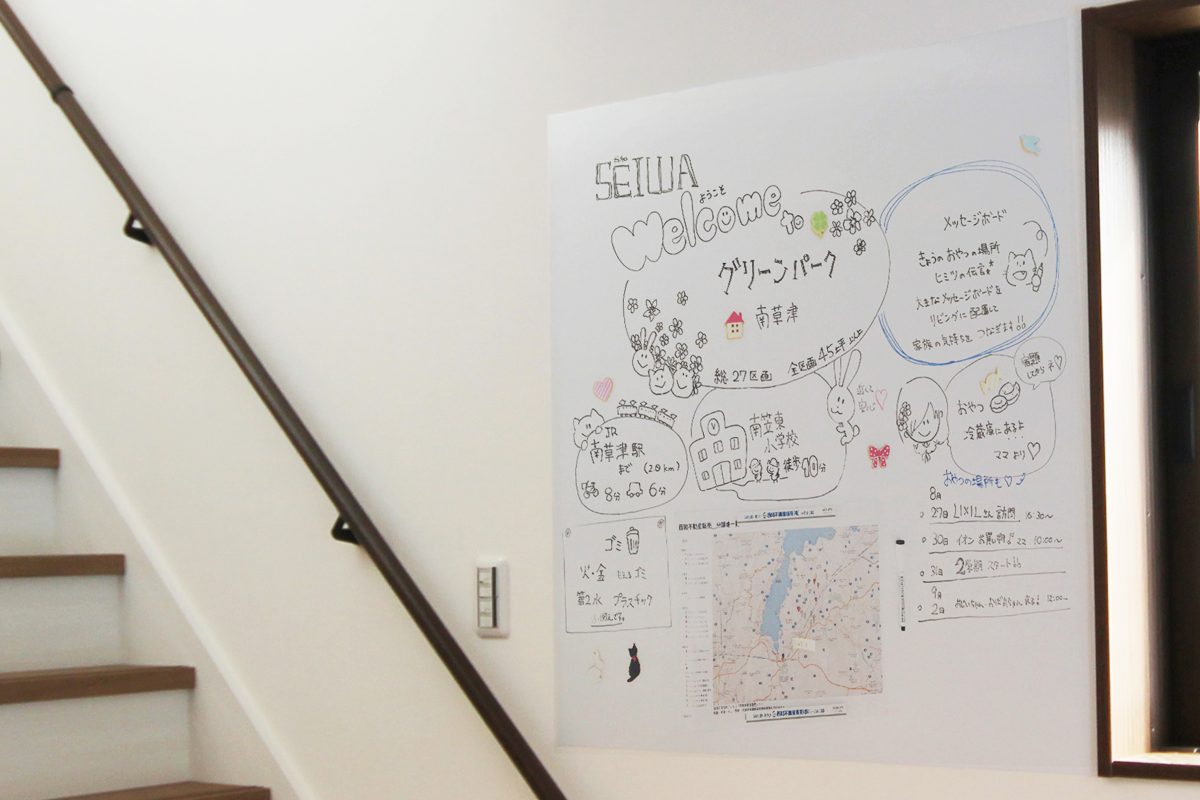 SEIWA
ようこそ
Welcome to
グリーンパーク
南草津
総27区画 全区画45坪以上
メッセージボード
きょうのおやつの場所
ヒミツの伝言
大きなメッセージボードを
リビングに配置して
家族の気持ちを つなぎます!!
JR
南草津駅
まで (2.0km)
8分 6分
南笠東
小学校
徒歩10分
近くて
安心
宿題
してから ネ
おやつ
冷蔵庫にあるよ
ママより
おやつの場所も
8月
29日 LIXILさん 訪問
30日 イオン お買い物 ママ 10:00～
31日 2学期 スタート
9月
2日
ゴミ
火・金 もえるゴミ
第2水 プラスチック